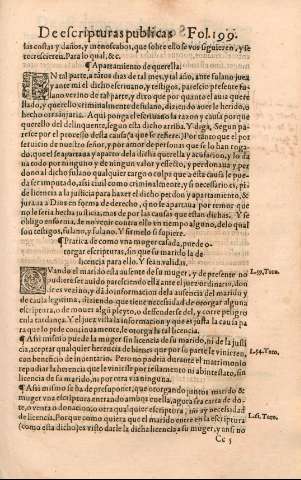 De escripturas publicas Fol. 199.
las costas y daños, y menoscabos, que sobre ello se vos siguieren, y se
recrescieren. Para lo qual, &c.
¶ Apartamiento de querella.
EN tal parte, a tãtos dias de tal mes, y tal año, ante fulano juez
y ante mi el dicho escriuano, y testigos, parescio presente fu
lano vezino de tal parte, y dixo que por quanto el auia quere
llado, y querello criminalmente de fulano, diziendo auer le herido, o
hecho otra injuria. Aqui ponga el escriuano la razon y causa porque
querello del delinquente, segun esta dicho arriba. Y dogã, Segun pa
resce por el processo dela causa (a que se refiere.) Por tanto que el por
seruicio de nuestro señor, y por amor de personas que se lo han roga-
do, que el se apartaua y aparto dela dicha querella y acusacion, y lo da
ua todo por ninguno y de ningun valor y efecto, y perdonaua y per
dono al dicho fulano qualquier cargo o culpa que a esta causa le pue
da ser imputado, assi ciuil como criminalmente, y si necessario es, pi
de licencia a la justicia para hazer el dicho perdon y apartamiento, &
juraua a Dios en forma de derecho, q̃ no le apartaua por temor que
no le seria hecha justicia, mas de por las causas que estan dichas. Y se
obligo en forma, de no venir contra ello en tiempo alguno, delo qual
son testigos, fulano, y fulano. Y firmelo si supiere.
¶ Pratica de como vna muger casada, puede o-
torgar escripturas, sin que su marido la de
licencia para ello. Y sean validas.
QVando el marido esta ausente de su muger, y de presente no
pudiere ser auido paresciendo ella ante el juez ordinario, don
de es vezino, y dãdo informacion dela ausencia del marido y
de causa legitima, diziendo que tiene necessidad de otorgar alguna
escriptura, o de mouer algũ pleyto, o defender se del, y corre peligro
en la tardança. Y el juez vista la informacion y que es justa la causa pa
ra que lo pide continuamente, le otorga la tal licencia.
¶ Assi mismo puede la muger sin licencia de su marido, ni de la justi
cia, aceptar qualquier herencia de bienes que por su parte le vinieren,
con beneficio de inuentario. Pero no podra durante el matrimonio
repudiar la herencia que le viniesse por testamento ni abintestato, sin
licencia de su marido, ni por otra via ninguna.
¶ Assi mismo se ha de presuponer, que otorgando juntos marido &
muger vna escriptura entrando ambos enella, agora sea carta de do-
te, o venta o donacion, o otra qualquier escriptura, no ay necessidad
de licencia. Porque como quiera que el marido entre en la escriptura
(como esta dicho) es visto dar la dicha licencia a su muger, y ansi no
Cc 5
L.59. Toro.
L.54. Toro.
L.61. Toro.